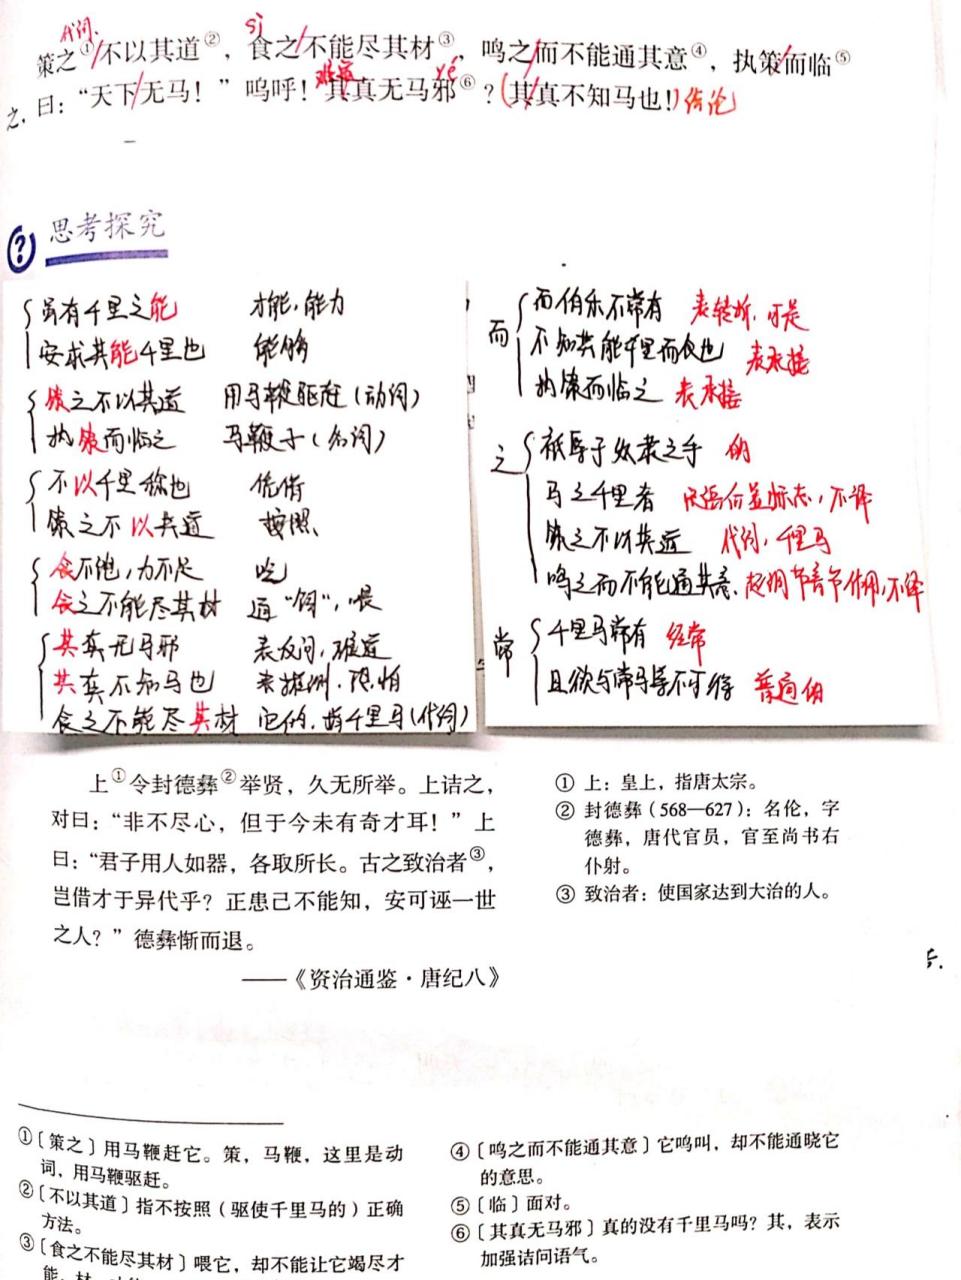 代词
sì
策之①/不以其道②，食之/不能尽其材③，鸣之/而不能通其意④，执策/而临⑤
难道
yé
之，曰：“天下/无马！”呜呼！其真无马邪⑥？(其/真不知马也！)结论
思考探究
虽有千里之能 才能，能力
安求其能千里也 能够
策之不以其道 用马鞭驱赶（动词）
执策而临之 马鞭子（名词）
不以千里称也 凭借
策之不以其道 按照
食不饱，力不足 吃
食之不能尽其材 通“饲”，喂
其真无马邪 表反问，难道
其真不知马也 表推测，恐怕
食之不能尽其材 它的，指千里马（代词）
而
而伯乐不常有 表转折，可是
不知其能千里而食也 表承接
执策而临之 表承接
之
祇辱于奴隶之手 的
马之千里者 定语后置标志，不译
策之不以其道 代词，千里马
鸣之而不能通其意，起调节音节作用，不译
常
千里马常有 经常
且欲与常马等不可得 普通的
上①令封德彝②举贤，久无所举。上诘之，
对曰：“非不尽心，但于今未有奇才耳！”上
曰：“君子用人如器，各取所长。古之致治者③，
岂借才于异代乎？正患己不能知，安可诬一世
之人？”德彝惭而退。
——《资治通鉴·唐纪八》
① 上：皇上，指唐太宗。
② 封德彝（568—627）：名伦，字
德彝，唐代官员，官至尚书右
仆射。
③ 致治者：使国家达到大治的人。
5.
①〔策之〕用马鞭赶它。策，马鞭，这里是动
词，用马鞭驱赶。
②〔不以其道〕指不按照（驱使千里马的）正确
方法。
③〔食之不能尽其材〕喂它，却不能让它竭尽才
④〔鸣之而不能通其意〕它鸣叫，却不能通晓它
的意思。
⑤〔临〕面对。
⑥〔其真无马邪〕真的没有千里马吗？其，表示
加强诘问语气。